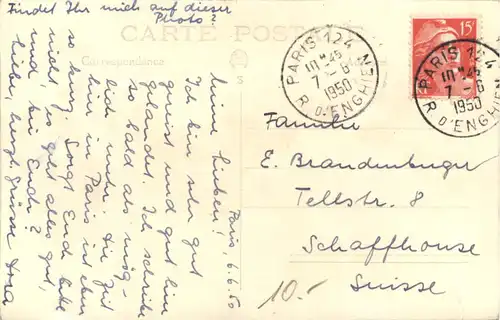 Findet Ihr mich auf dieser
Photo?
CARTE POSTALE
Correspondance
Paris, 6.6.50
Meine Lieben!
Ich bin sehr gut
gereist und gut hier
gelandet. Ich schreibe
so bald als mög-
lich mehr. Die Zeit
hier in Paris ist eben
so kurz. Sorgt Euch bitte
nicht, es geht alles gut,
und bei Euch?
Liebe, herzl. Grüsse
PARIS 124
10 45
7 - 6
1950
R. D'ENGHIEN
15F
PARIS 124
10 45
7 - 6
1950
R. D'ENGHIEN
Familie
E. Brandenburger
Tellstr. 8
Schaffhouse
Suisse
10.-